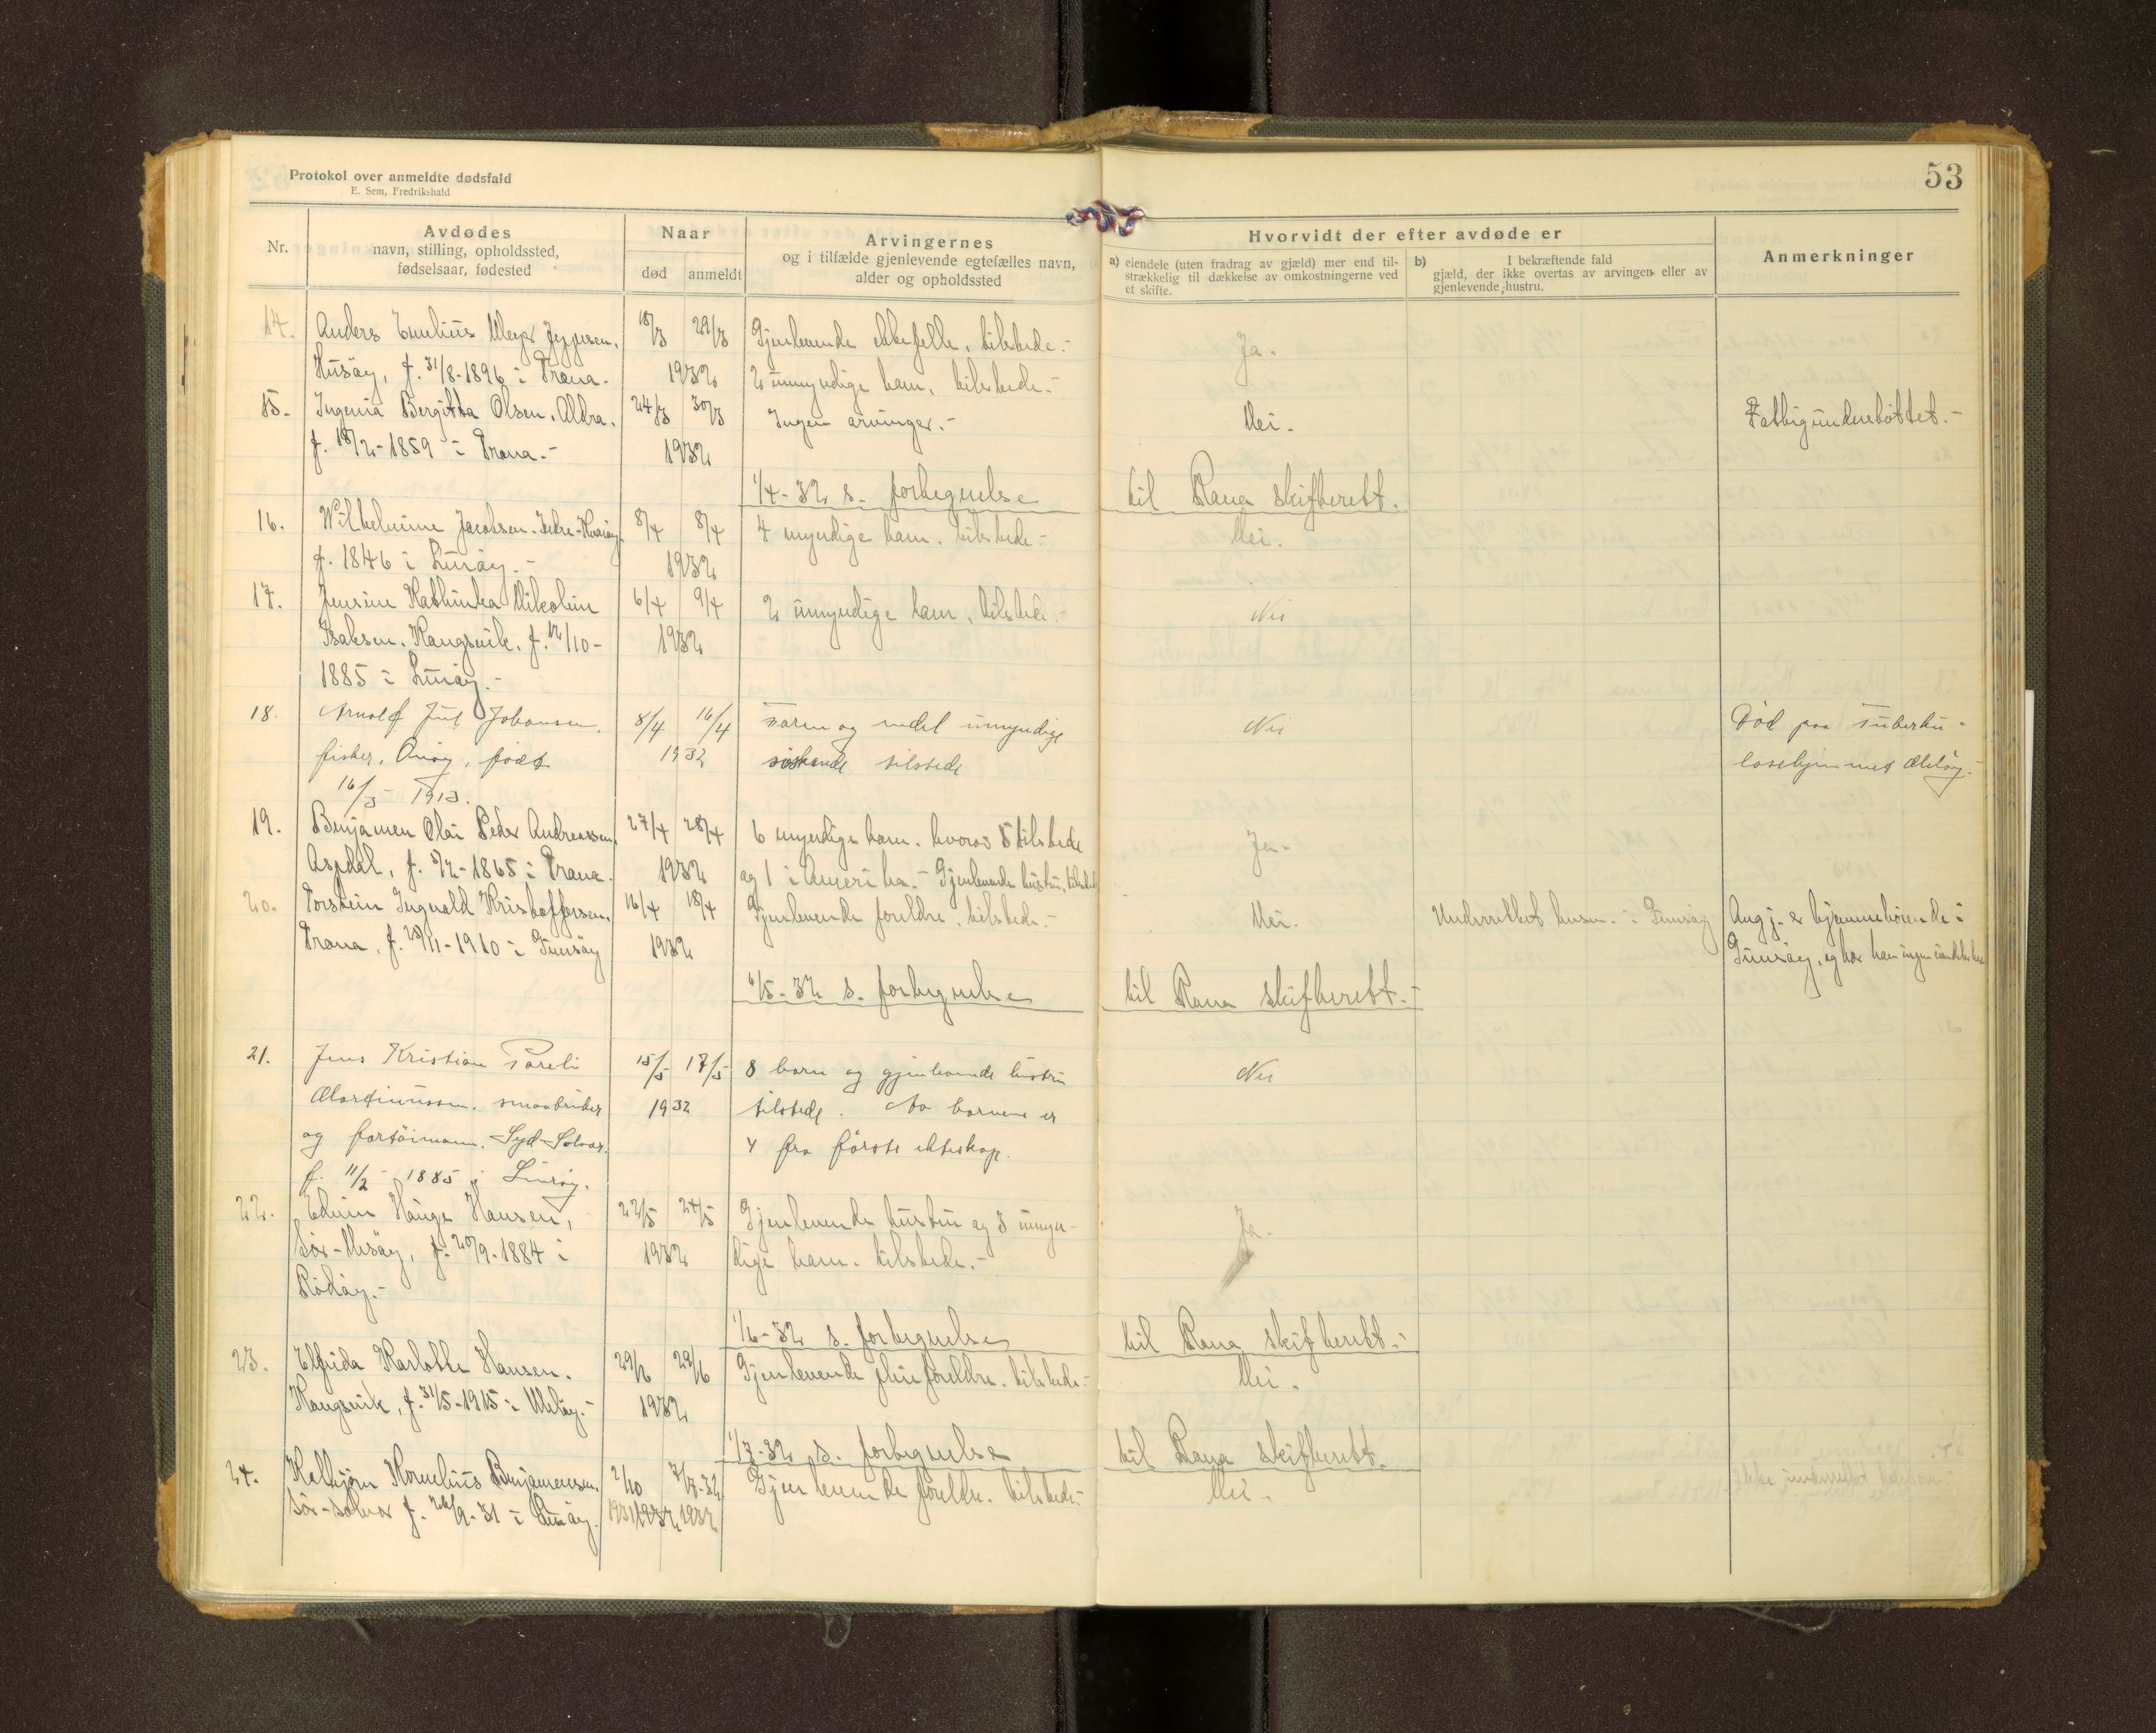 Protokol over anmeldte dødsfald
E. Sem, Fredrikshald
53
Nr.
Avdødes
navn, stilling, opholdssted,
fødselsaar, fødested
Naar
død
anmeldt
Arvingernes
og i tilfælde gjenlevende egtefælles navn,
alder og opholdssted
Hvorvidt der efter avdøde er
a) eiendele (uten fradrag av gjæld) mer end til-
strækkelig til dækkelse av omkostningerne ved
et skifte.
b) I bekræftende fald
gjæld, der ikke overtas av arvingen eller av
gjenlevende hustru.
Anmerkninger
14. Anders Emelius Meyer Jeppesen, 18/3 29/3 Gjenlevende ektefelle, tilstede.- Ja.
Husöy, f. 31/8-1896 i Træna. 1932 2 umyndige barn, tilstede.-
15. Ingenia Bergitta Olsen, Aldra. 24/3 30/3 Ingen arvinger.- Nei. Fattigunderstöttet.-
f. 18/2-1859 i Træna.- 1932
1/4-32 s. fortegnelse til Rana skifterett.
16. Wilhelmine Jacobsen. Indre-Kvaröy. 8/4 8/4 4 myndige barn. tilstede.- Nei.
f. 1846 i Luröy.- 1932
17. Jensine Kathinka Nikoline 6/4 9/4 2 umyndige barn, tilstede.- Nei
Isaksen. Kangsvik, f. 12/10- 1932
1885 i Luröy.-
18. Arnold Jul Johansen, 8/4 16/4 Farm og endel umyndige Nei Död paa Tuberku-
fisker, Onöy, född 1932 söskende tilstede losehjemmet Meløy.-
16/5 1913.
19. Benjamen Olai Peder Andreassen, 27/4 28/4 6 myndige barn. hvorav 5 tilstede Ja.
Aspdal, f. 3/2-1865 i Træna. 1932 og 1 i Amerika.- Gjenlevende hustru, tilstede
20. Torstein Ingvald Kristoffersen, 16/4 18/4 Gjenlevende foreldre, tilstede.- Nei. Underrettet lensm. i Gimsöy Angj. er hjemmehörende i
Træna, f. 29/11-1910 i Gimsöy 1932 Gimsöy, og har han ingen eiendeler her
6/5-32 s. fortegnelse til Rana skifterett.-
21. Jens Kristian Toreli 15/5 17/5 8 barn og gjenlevende hustru Nei
Martinussen. smaabruker 1932 tilstede. Av barnene er
og fartöimann. Syd-Solvær. 4 fra förste ekteskap.
f. 11/2 1885 i Luröy.
22. Edvin Hauge Hansen, 22/5 24/5 Gjenlevende hustru og 3 umyn- Ja.
Sör-Nesöy, f. 20/9-1884 i 1932 dige barn. tilstede.-
Rödöy.-
1/6-32 s. fortegnelse til Rana skifterett.-
23. Elfrida Karlotte Hansen. 29/6 29/6 Gjenlevende pleieforeldre. tilstede.- Nei.
Kangsvik, f. 31/5-1915 i Melöy.- 1932
1/7-32 s. fortegnelse til Rana skifterett.
24. Halbjörn Kornelius Benjamensen. 2/10 7/7-32 Gjenlevende foreldre. tilstede.- Nei.
Sör-Solvær f. 26/9-31 i Luröy. 1931 1932 1932